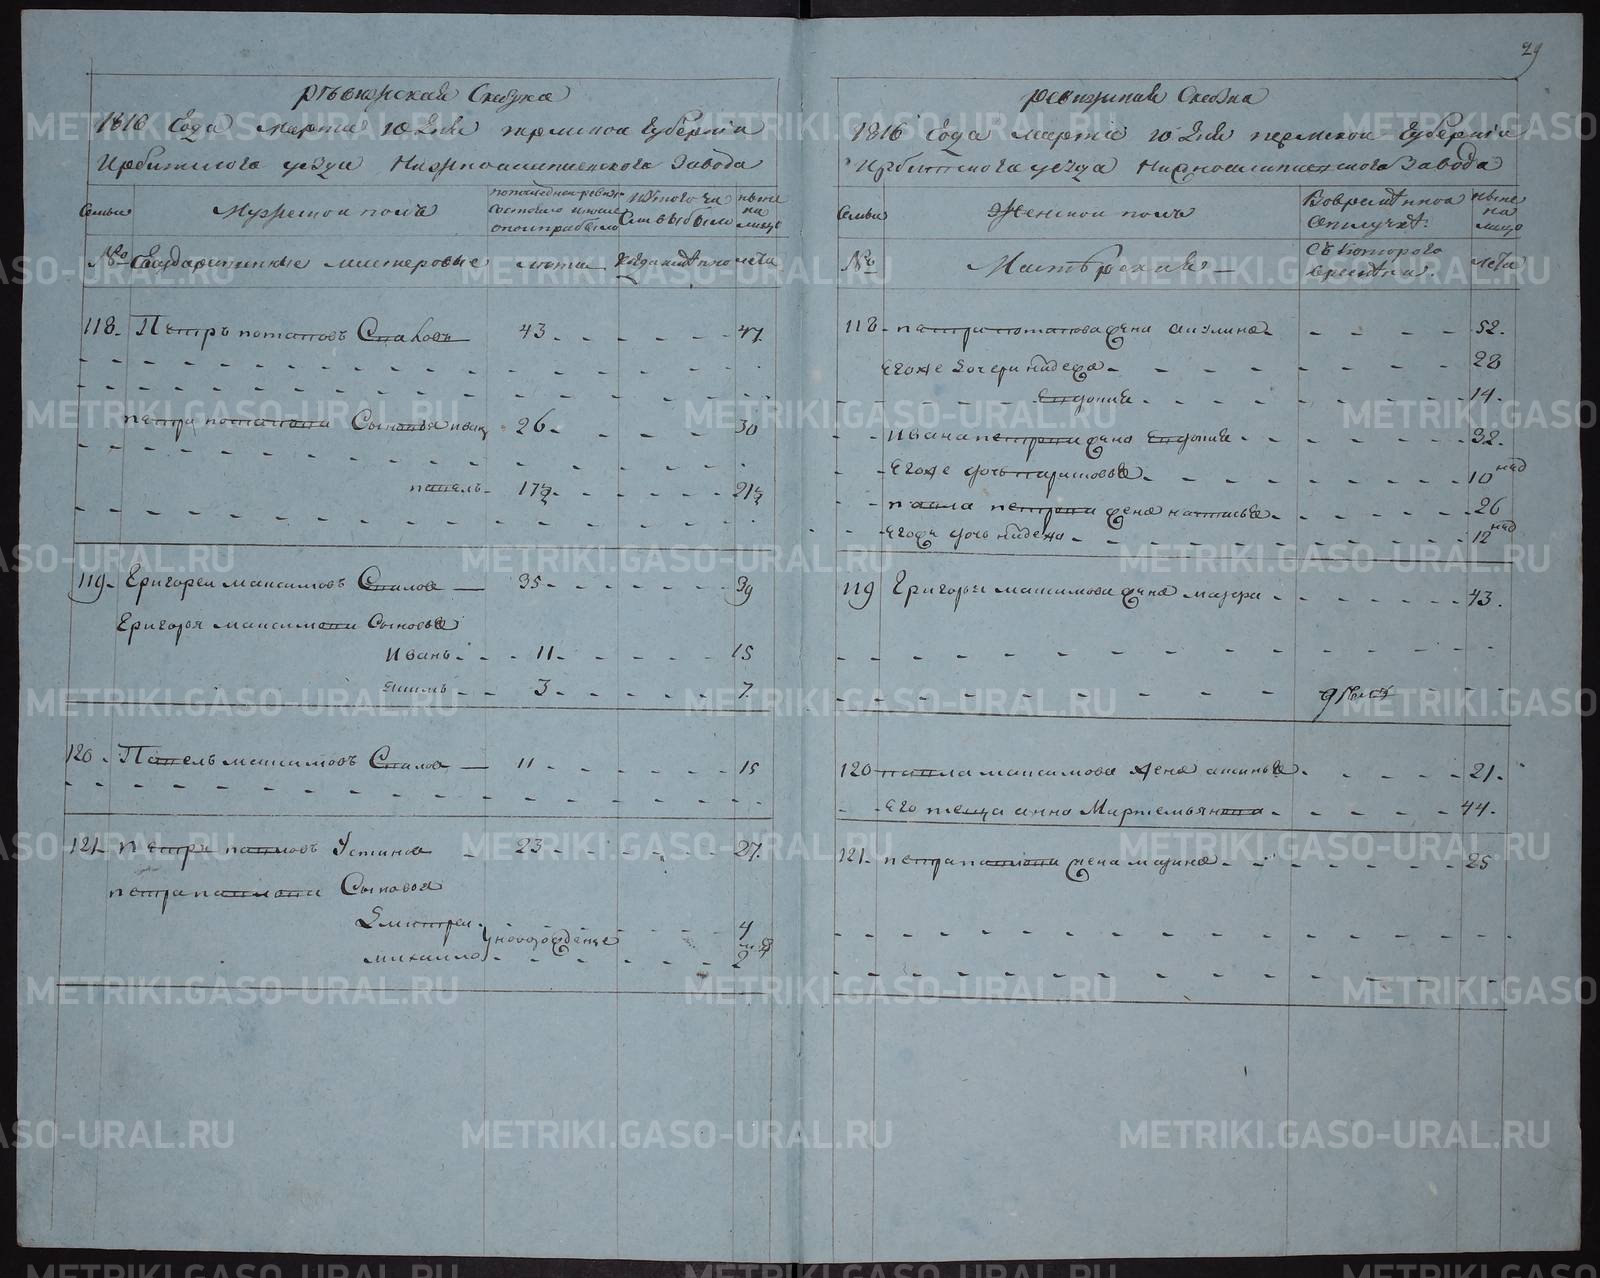 29
Ревижская Сказка
1816 Года Марта 10 Дня пермской Губернiи
Ирбитского уезда Нижноалапаевского Завода
Семьи
Мужеской полъ
По последней ревизiи состояло и после оной прибыло
Изтого числа выбыло
ныне на лицо
№
Государственные мастеровые
лета
Когда имянно
лета
118. Петръ потаповъ Спаховъ 43 47.
петра потапова Сыновья иванъ 26 30
павелъ 17½ 21½
119. Григореи максимовъ 35 39
Григорья максимова Сыновья
Иванъ 11 15
якимъ 3 7.
120. Павелъ максимовъ 11 15
121. петръ павловъ Устиновъ 23 27.
петра павлова Сыновья
Дмитреи 4
новорожденые
михаило 2
Ревижская Сказка
1816 Года Марта 10 Дня пермской Губернiи
Ирбитского уезда Нижноалапаевского Завода
Семьи
Женской полъ
Вовременной отлучке
ныне на лицо
№
Мастерския
Съ которого времени
лета
118 петра потапова жена акулина 52.
Егоже Дочери надежа 28
Евдокия 14.
Ивана петрова жена Евдокия 32.
Егоже дочь парасковья 10 нед
павла петрова жена настасья 26
Егоже дочь надежа 12 нед
119 Григорья максимова жена мавра 43.
120 павла максимова жена аксинья 21.
Его теща анна Мартемьянова 44.
121. петра павлова жена марина 25
METRIKI.GASO-URAL.RU